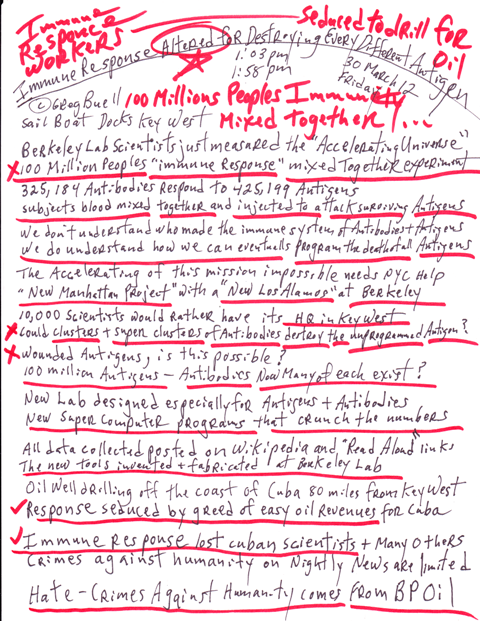 Immune
Response
Workers
Seduced to drill for
Oil
Immune Response Altered for Destroying Every Different Antigen
1:03 pm
1:58 pm
30 March 12
Friday
© Greg Buell
100 Millions Peoples Immunity
Sail Boat Docks Key West
Mixed Together!...
Berkeley Lab Scientists just measured the "Accelerating Universe",
x 100 Million Peoples "immune Response" mixed Together experiment
325,184 Antibodies Respond to 425,199 Antigens
subjects blood mixed together and injected to attack surviving Antigens
We don't understand who made the immune system of Antibodies + Antigens
We do understand how we can eventually program the death of all Antigens
The Accelerating of this mission impossible needs NYC Help
"New Manhattan Project" with a "New Los Alamos" at Berkeley
10,000 Scientists would rather have its HQ in Key West
x Could clusters + super clusters of Antibodies destroy the unprogrammed Antigen?
x Wounded Antigens, is this possible?
100 million Antigens – Antibodies How Many of each exist?
New Lab designed especially for Antigens + Antibodies
New Super Computer programs that crunch the numbers
All data collected posted on Wikipedia and "Read Aloud" links
The new tools invented + fabricated at Berkeley Lab
Oil Well drilling off the coast of Cuba 80 miles from Key West
✓ Response seduced by greed of easy oil Revenues for Cuba
✓ Immune Response lost cuban scientists + Many Others
Crimes against humanity on Nightly News are limited
Hate-Crimes Against Humanity comes From BP Oil